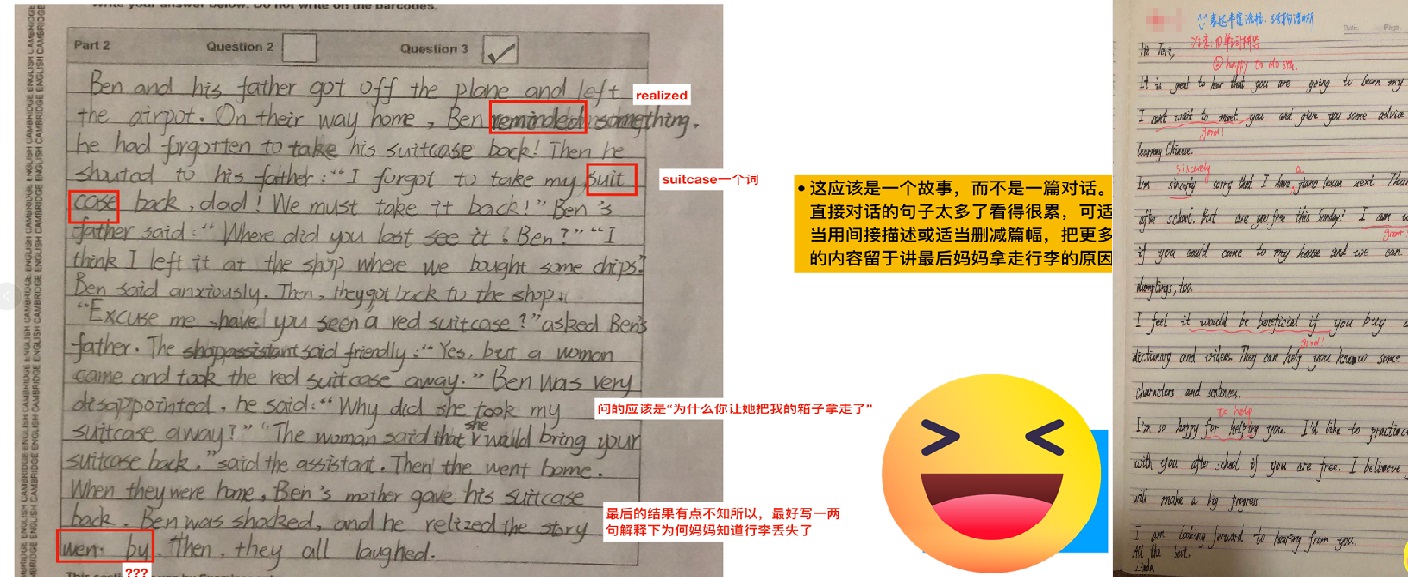 Write your answer below. Do not write on the barcodes.
Part 2 Question 2 Question 3
Ben and his father got off the plane and left
the airpot. On their way home, Ben reminded something.
he had forgotten to take his suitcase back! Then he
shouted to his father: "I forgot to take my suit
case back, dad! We must take it back!" Ben's
father said: "Where did you last see it, Ben?" "I
think I left it at the shop where we bought some chips."
Ben said anxiously. Then, they got back to the shop.
"Excuse me, have you seen a red suitcase?" asked Ben's
father. The said friendly: "Yes, but a woman
came and took the red suitcase away." Ben was very
disappointed, he said: "Why did she took my
suitcase away?" "The woman said that she would bring your
suitcase back." said the assistant. Then the went home.
When they were home, Ben's mother gave his suitcase
back. Ben was shocked, and he relized the story
went by. Then, they all laughed.
realized
suitcase一个词
问的应该是“为什么你让她把我的箱子拿走了”
最后的结果有点不知所以，最好写一两
句解释下为何妈妈知道行李丢失了
???
• 这应该是一个故事，而不是一篇对话。
直接对话的句子太多了看得很累，可适
当用间接描述或适当删减篇幅，把更多
的内容留于讲最后妈妈拿走行李的原因
②happy to do sth.
It is great to hear that you are going to learn my
I can't wait to meet you and give you some advice
good!
learning Chinese.
sincerely a
I'm sorry that I have piano
after school. But are you free this Sunday? I am
if you could come to my house and we can
dumplings, too.
I feel it would be beneficial if you buy a
good!
dictionary and They can help you know some
characters and sentences.
to help
I'm so happy for helping you. I'd like to practice
with you after school if you are free. I believe
will make a big progress
I am looking forward to hearing from you.
All the best.
Linda